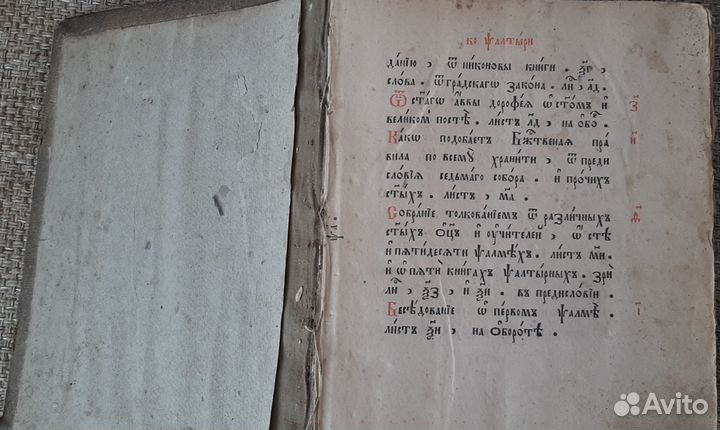 ко ѱалтыри
данїю , ѿ никоновы книги . ѯ҃г ,
слова . ѿградскагѡ закона . ли́ , л҃д .
Ѿ ст҃а́гѡ а҆́ввы дорофе́я ѡ҆ ст҃о́мъ и҆
з҃
вели́комъ постѣ̀ . ли́стъ л҃д , на ѻ҆бо .
Ка́кѡ подоба́етъ Бж҃е́ственая пра
и҃
вила по всемꙋ̀ храни́ти , ѿ преди
сло́вїя седьма́го собо́ра . и҆ про́чихъ
ст҃ы́хъ . ли́стъ , м҃а .
Собра́нїе толкова́нїемъ ѿ разли́чныхъ
ѳ҃
ст҃ы́хъ ѻ҆ц҃ъ и҆ ᲂу҆чи́телей , ѡ҆ стѣ̀
и҆ пяти́десяти ѱалмѣ́хъ . ли́стъ м҃и .
и҆ ѡ҆ пятѝ кни́гахъ ѱалты́рныхъ . зрѝ
ли́ , ѯ҃з , и҆ ѯ҃и . въ предисло́вїи .
Бесѣ́дованїе ѡ҆ пе́рвомъ ѱалмѣ̀ .
і҃
ли́стъ ѯ҃и , на ѻ҆боро́тѣ .
Avito